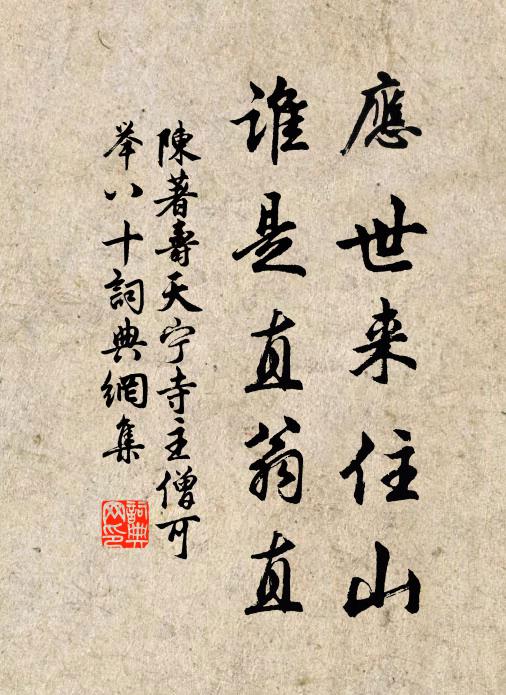 應世来住山
誰是直翁直
陳著壽天宁寺主僧可
举八十詞典網集
詞典
网印